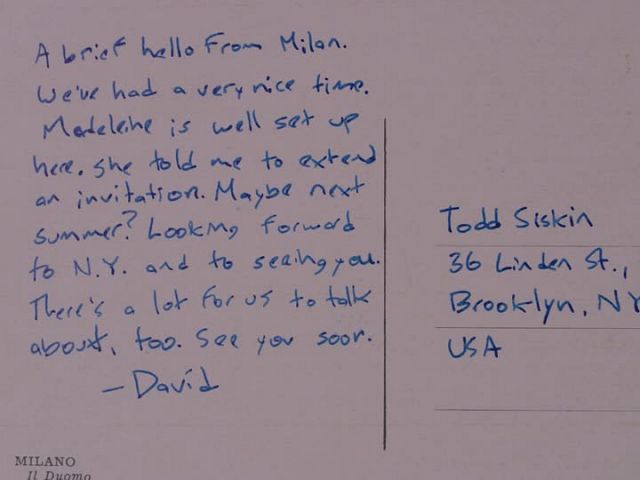 A brief hello from Milan.
We've had a very nice time.
Madeleine is well set up
here. She told me to extend
an invitation. Maybe next
summer? Looking forward
to N.Y. and to seeing you.
There's a lot for us to talk
about, too. See you soon.
—David
Todd Siskin
36 Linden St.,
Brooklyn, NY
USA
MILANO
Il Duomo